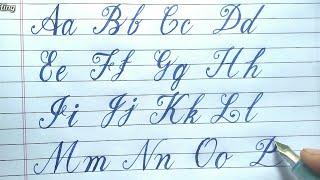 Aa Bb Cc Dd
Ee Ff Gg Hh
Ii Jj Kk Ll
Mm Nn Oo P